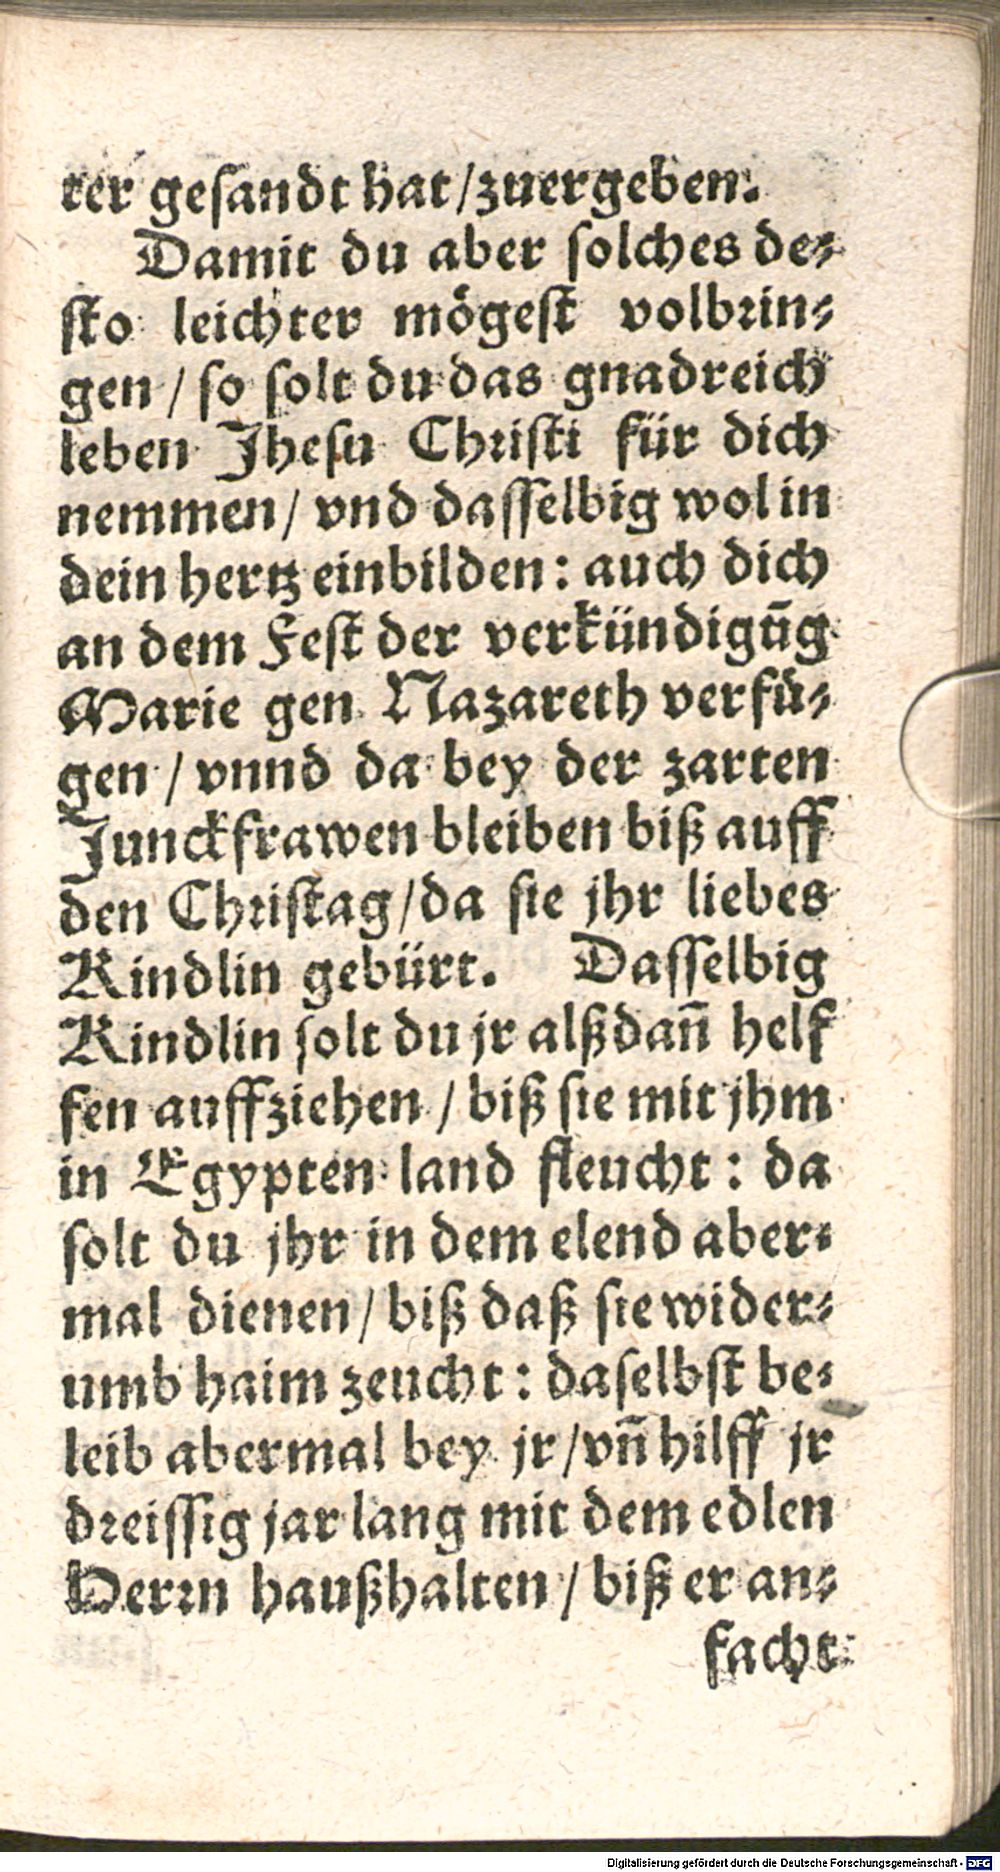 ter gesandt hat/zuergeben.
Damit du aber solches de-
sto leichter mögest volbrin-
gen / so solt du das gnadreich
leben Jhesu Christi für dich
nemmen/ vnd dasselbig wol in
dein hertz einbilden: auch dich
an dem Fest der verkündigūg
Marie gen Nazareth verfü-
gen / vnnd da bey der zarten
Junckfrawen bleiben biß auff
den Christag/da sie jhr liebes
Kindlin gebürt. Dasselbig
Kindlin solt du jr alßdañ helf
fen auffziehen / biß sie mit jhm
in Egypten land fleucht: da
solt du jhr in dem elend aber-
mal dienen/ biß daß sie wider-
umb haim zeucht: daselbst be-
leib abermal bey jr/vñ hilff jr
dreissig jar lang mit dem edlen
Herrn haußhalten / biß er an-
facht
Digitalisierung gefördert durch die Deutsche Forschungsgemeinschaft - DFG